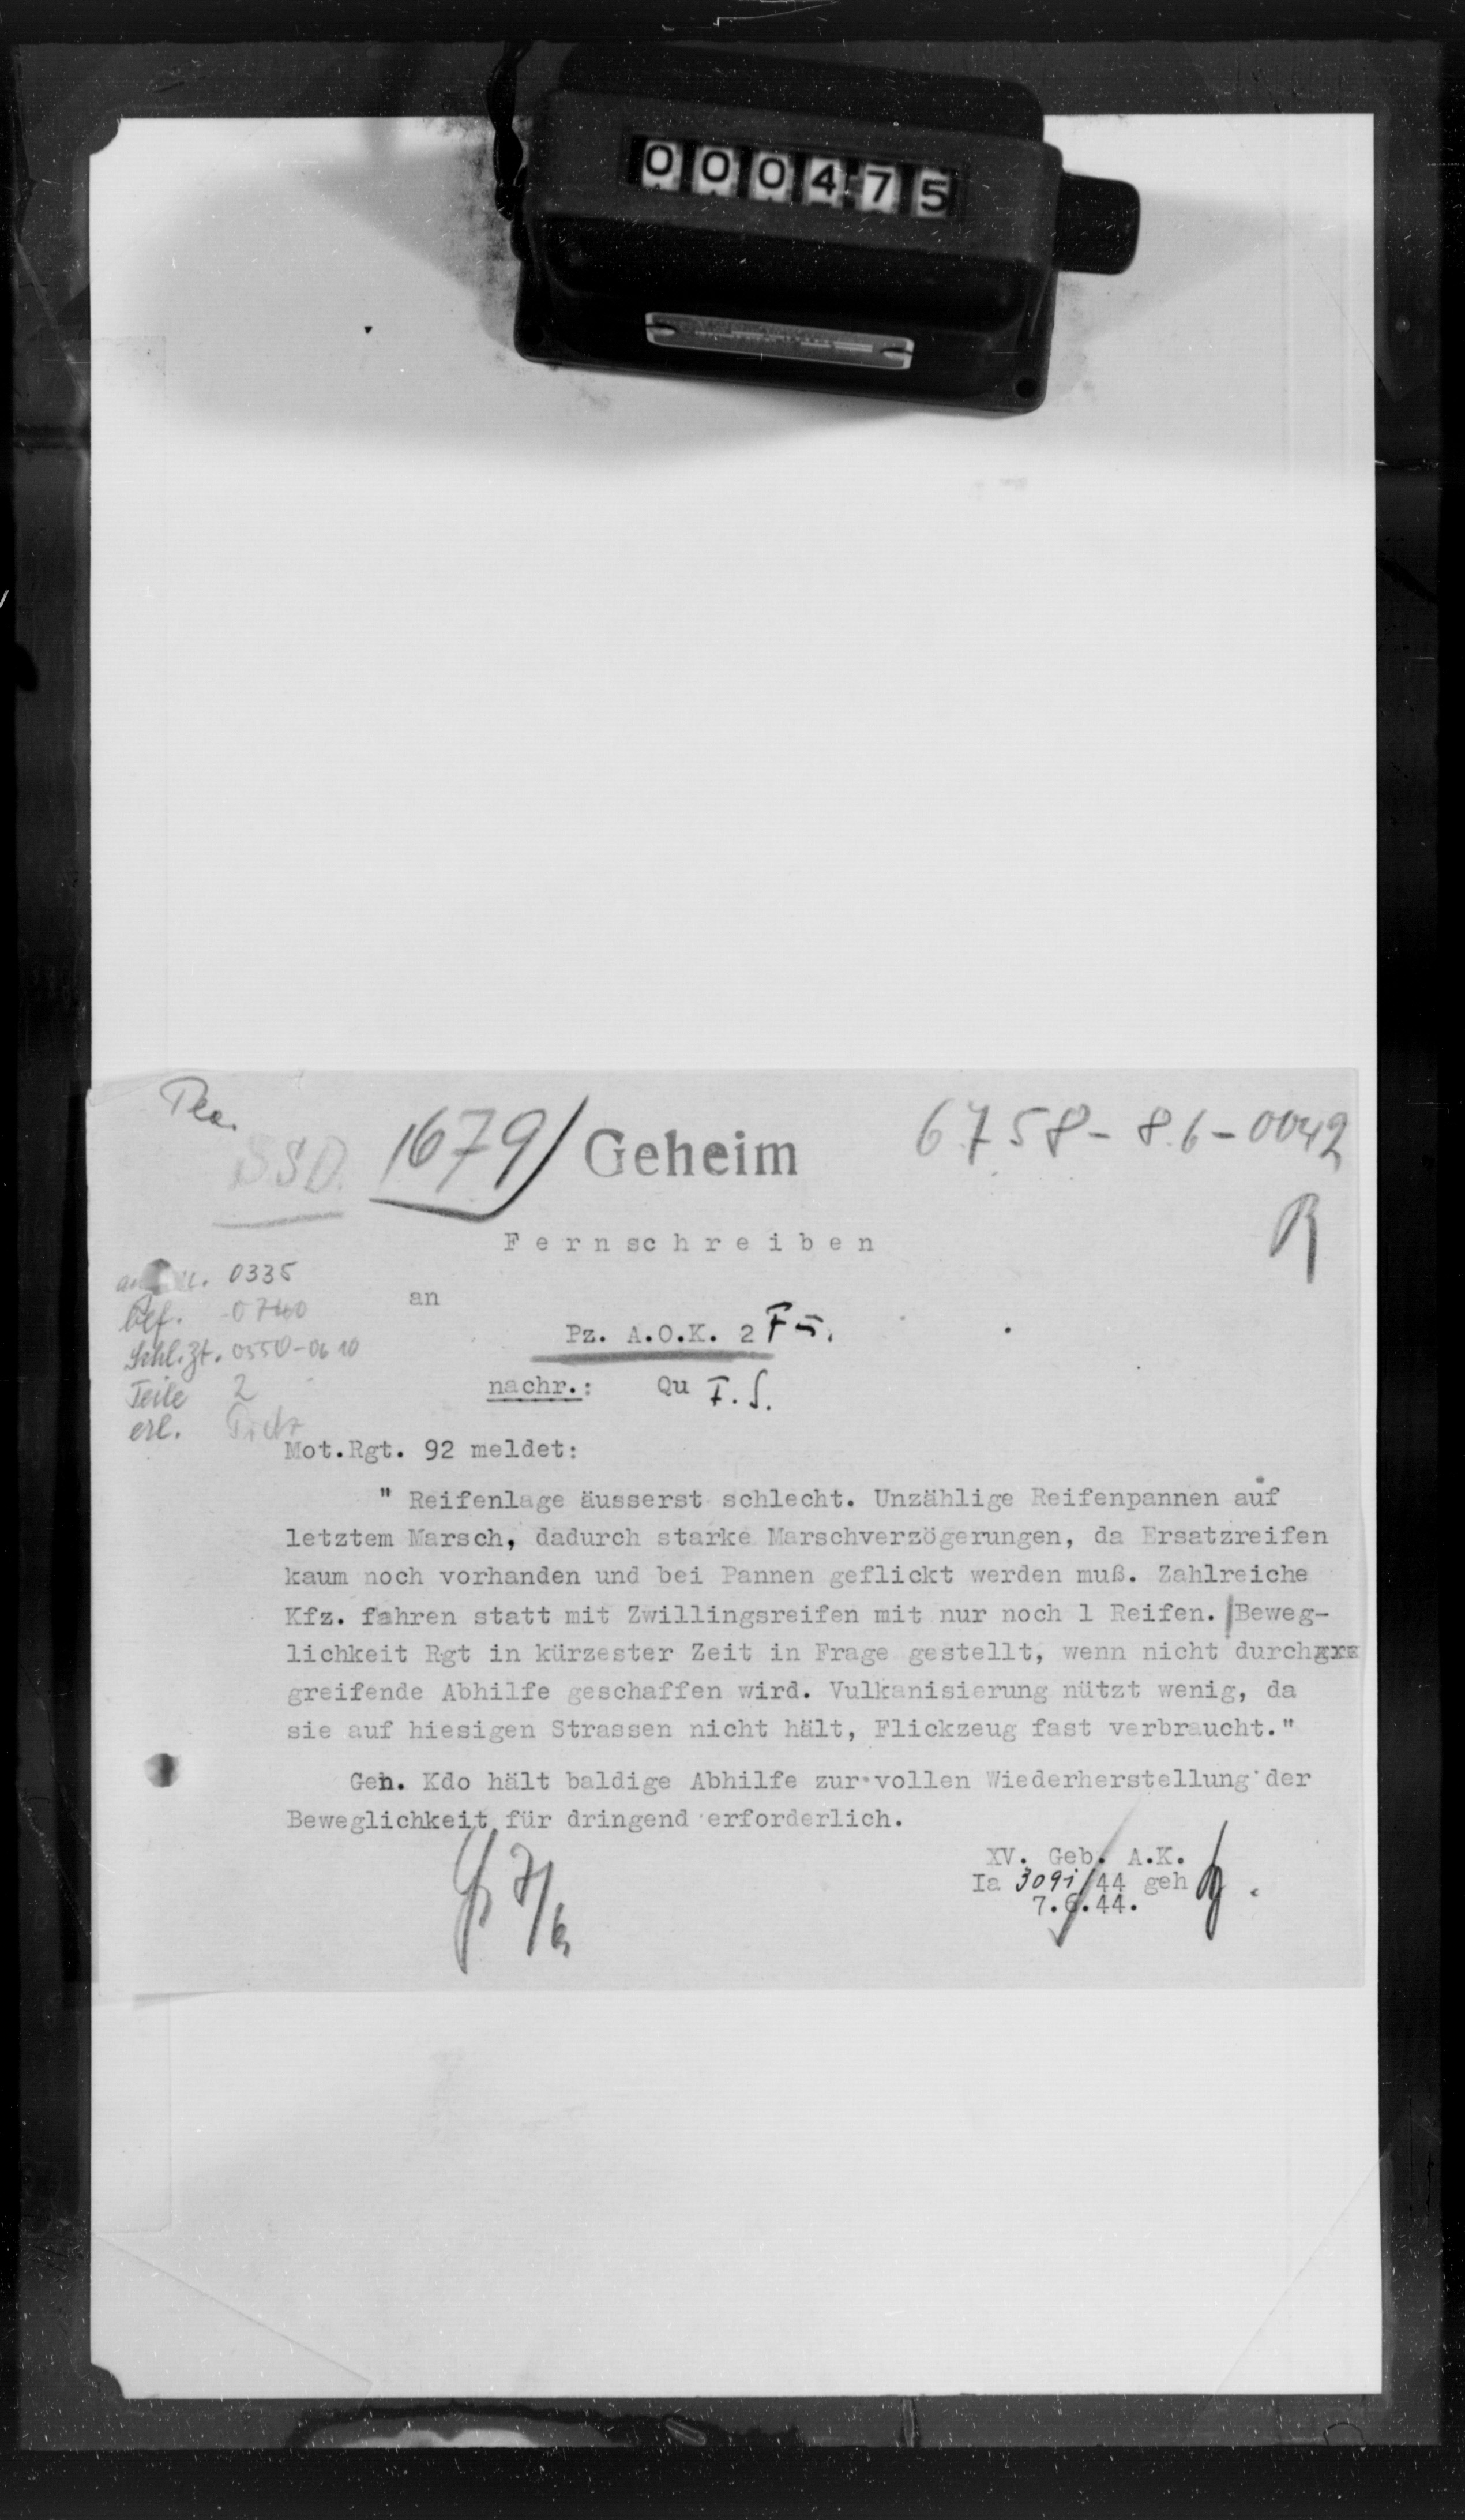 000475
SSD.
1679/ Geheim
6758-8.6-0042
R
Fernschreiben
0335
an
bef. 0740
Pz. A.O.K. 2
Schl.Zt. 0550-0610
nachr.: Qu
Teile 2
erl.
Mot.Rgt. 92 meldet:
" Reifenlage äusserst schlecht. Unzählige Reifenpannen auf
letztem Marsch, dadurch starke Marschverzögerungen, da Ersatzreifen
kaum noch vorhanden und bei Pannen geflickt werden muß. Zahlreiche
Kfz. fahren statt mit Zwillingsreifen mit nur noch 1 Reifen. Beweg-
lichkeit Rgt in kürzester Zeit in Frage gestellt, wenn nicht durch
greifende Abhilfe geschaffen wird. Vulkanisierung nützt wenig, da
sie auf hiesigen Strassen nicht hält, Flickzeug fast verbraucht."
Gen. Kdo hält baldige Abhilfe zur vollen Wiederherstellung der
Beweglichkeit für dringend erforderlich.
XV. Geb. A.K.
Ia 3091/44 geh
7.6.44.
7/6